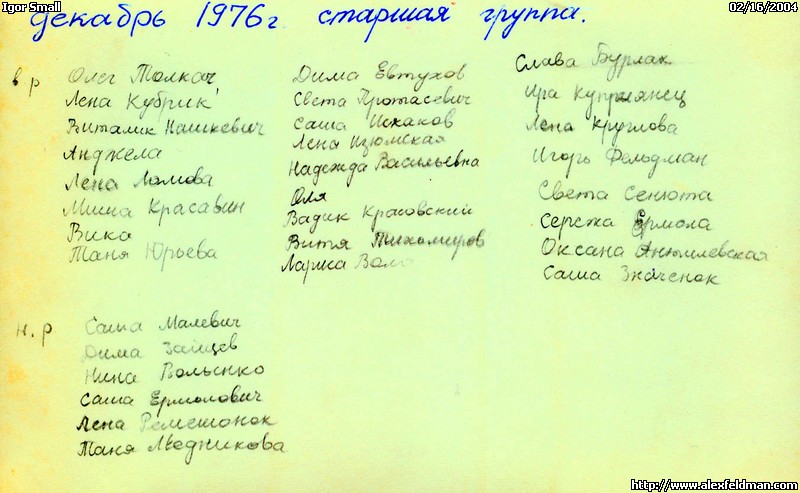 Igor Small
02/16/2004
декабрь 1976г. старшая группа.
в р
Олег Толкач
Лена Кубрик
Виталик Машкевич
Анджела
Лена Ломова
Миша Красавин
Вика
Таня Юрьева
Дима Евтухов
Света Протасевич
Саша Искаков
Лена Изюмская
Надежда Васильевна
Оля
Вадик Красовский
Витя Тихомиров
Лариса
Слава Бурлак
Ира Куприянец
Лена Круглова
Игорь Фельдман
Света Сенюта
Сережа Ермола
Оксана
Саша Значенок
н. р
Саша Малевич
Дима Зайцев
Нина Волынко
Саша Ермолович
Лена Ремешонок
Таня Медникова
http://www.alexfeldman.com